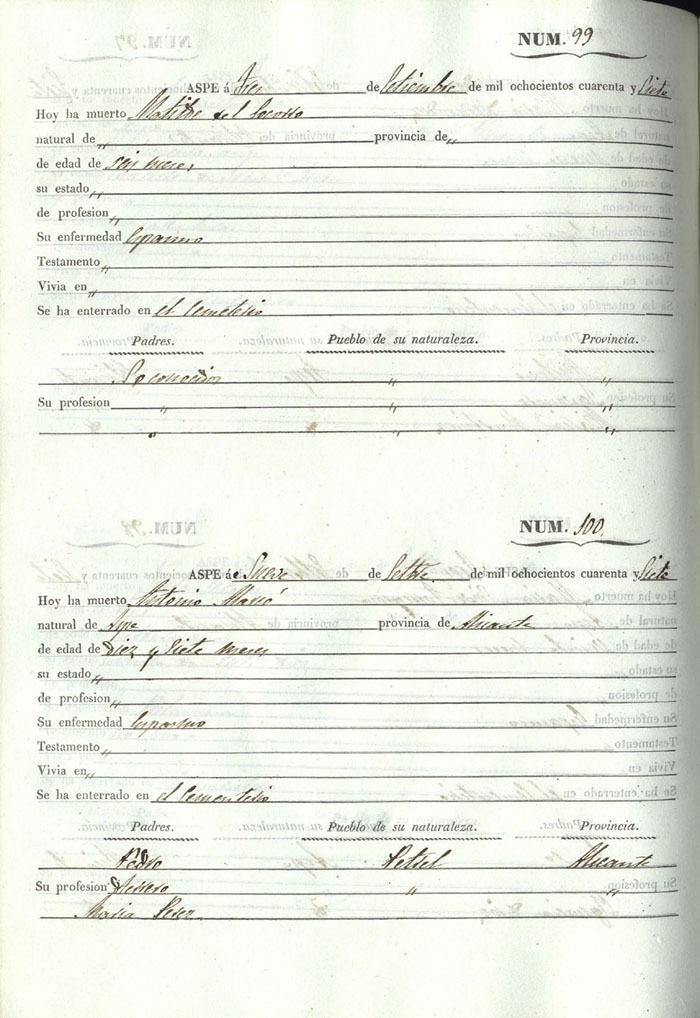 NUM. 99
ASPE á Tres de Setiembre de mil ochocientos cuarenta y Siete
Hoy ha muerto Matilde del Socorro
natural de „ provincia de „
de edad de seis meses
su estado „
de profesion „
Su enfermedad Espasmo
Testamento „
Vivia en „
Se ha enterrado en el Cementerio
Padres. Pueblo de su naturaleza. Provincia.
„ „
Su profesion „ „ „
„ „ „
NUM. 100
ASPE á Nueve de Setbre. de mil ochocientos cuarenta y Siete
Hoy ha muerto Antonio
natural de Aspe provincia de Alicante
de edad de Diez y Siete meses
su estado „
de profesion „
Su enfermedad Espasmo
Testamento „
Vivia en „
Se ha enterrado en el Cementerio
Padres. Pueblo de su naturaleza. Provincia.
Pedro Petrel Alicante
Su profesion Herrero „ „
Maria Perez